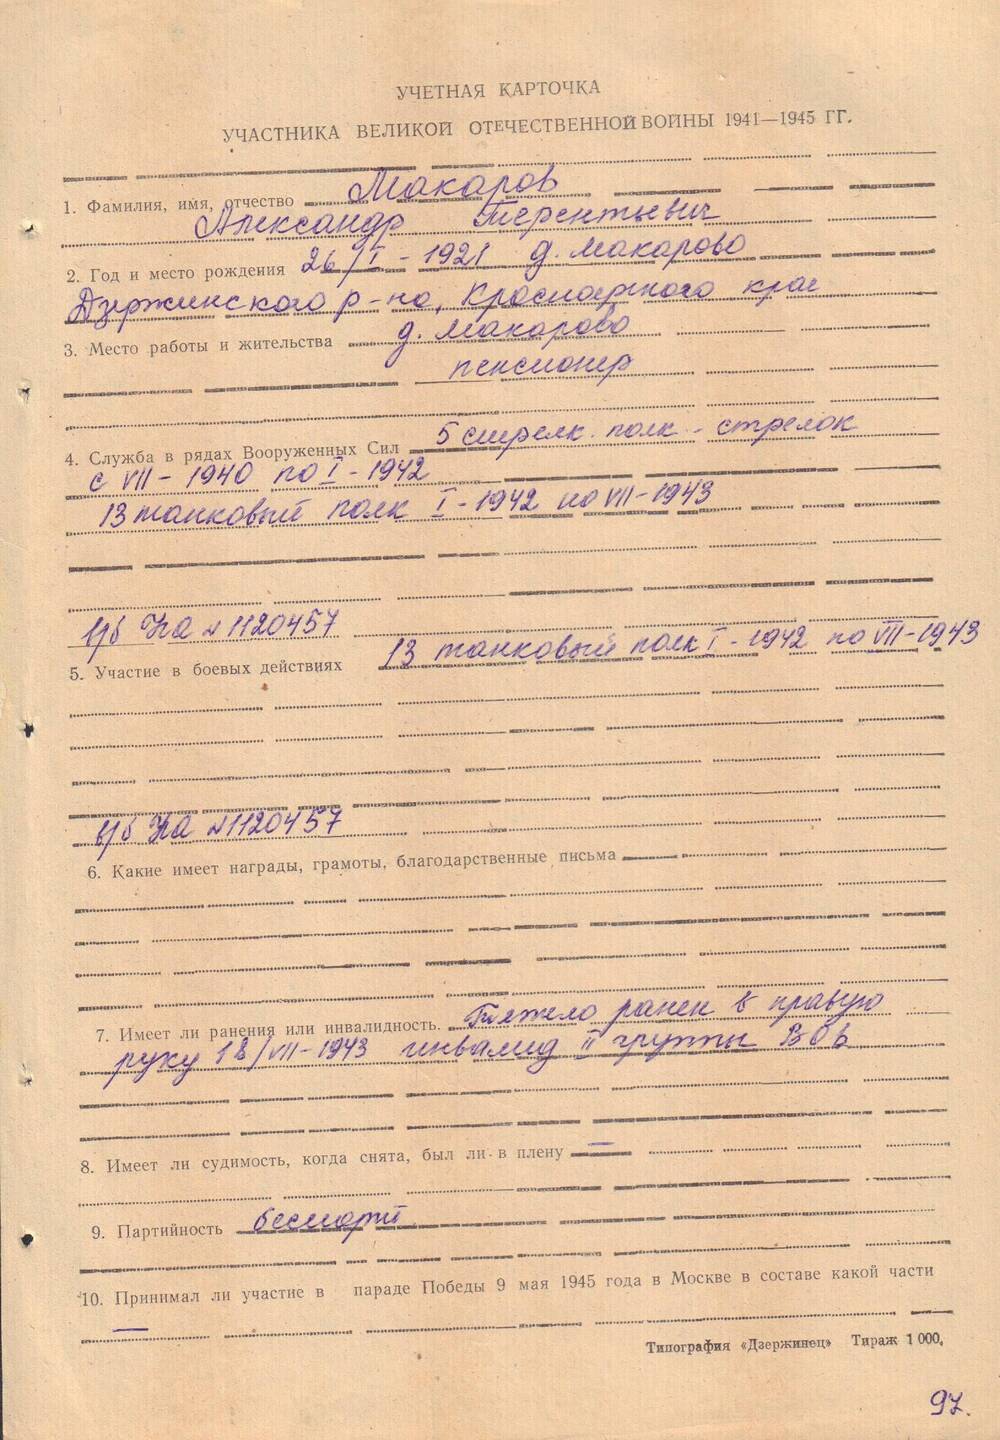 УЧЕТНАЯ КАРТОЧКА
УЧАСТНИКА ВЕЛИКОЙ ОТЕЧЕСТВЕННОЙ ВОЙНЫ 1941—1945 ГГ.
1. Фамилия, имя, отчество Макаров
Александр Терентьевич
2. Год и место рождения 26/I - 1921 д. Макарово
Дзержинского р-на, Красноярского края
3. Место работы и жительства д. Макарово
пенсионер
4. Служба в рядах Вооруженных Сил 5 стрелк. полк - стрелок
с VII - 1940 по I - 1942
13 танковый полк I - 1942 по VII - 1943
в/б НА № 1120457
5. Участие в боевых действиях 13 танковый полк I - 1942 по VII - 1943
в/б НА № 1120457
6. Какие имеет награды, грамоты, благодарственные письма
7. Имеет ли ранения или инвалидность. Тяжело ранен в правую
руку 18/VII - 1943 инвалид III группы ВОв
8. Имеет ли судимость, когда снята, был ли в плену —
9. Партийность беспарт
10. Принимал ли участие в параде Победы 9 мая 1945 года в Москве в составе какой части
—
Типография «Дзержинец» Тираж 1 000.
97.